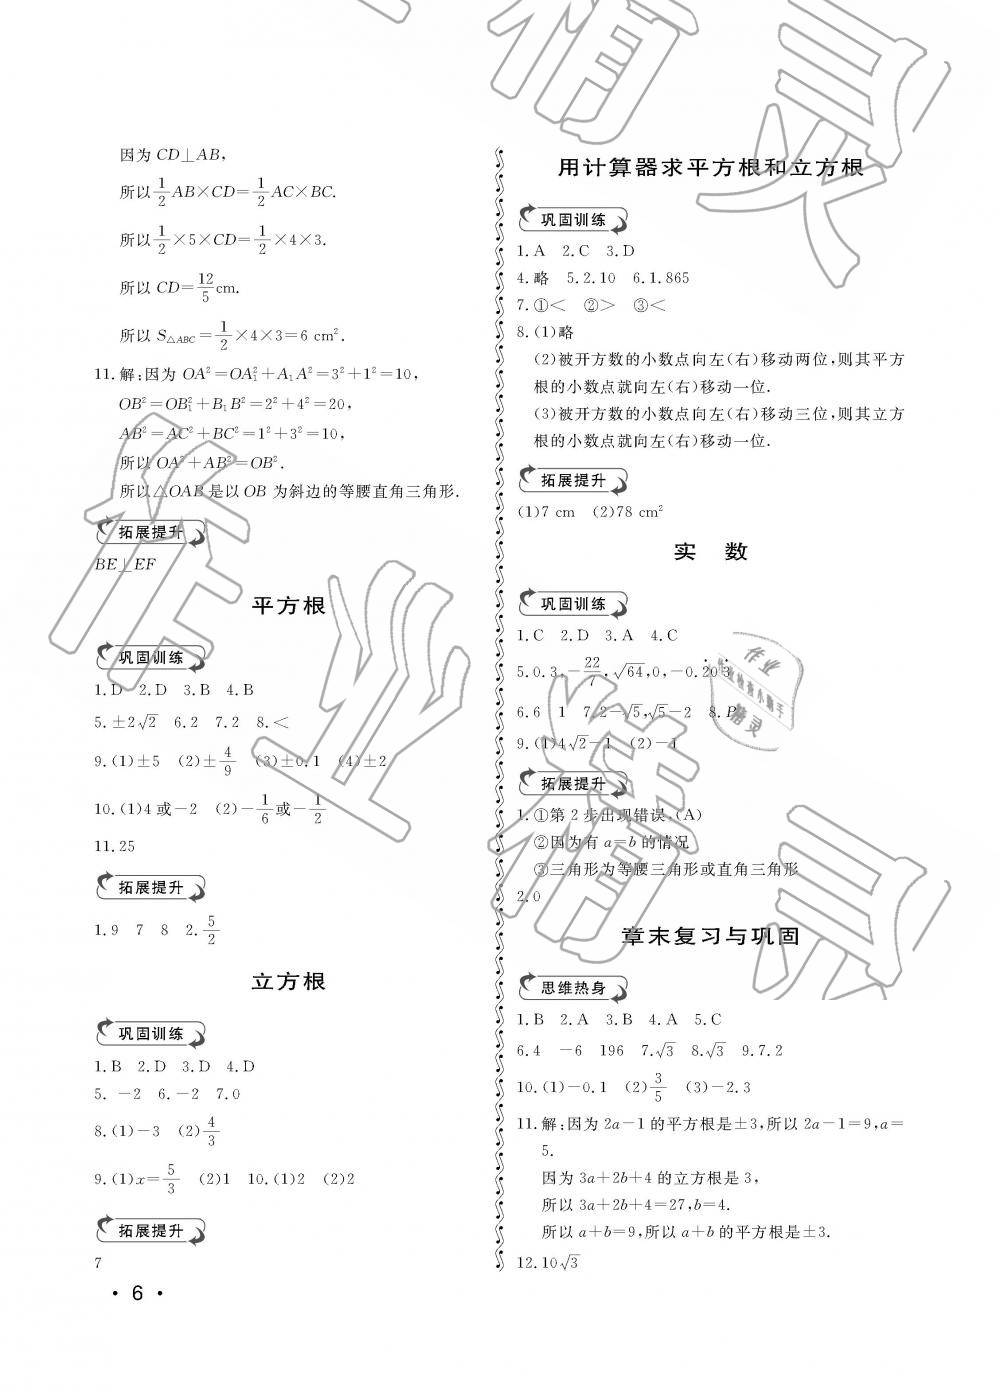 因为 CD⊥AB,
所以 1/2 AB×CD=1/2 AC×BC.
所以 1/2×5×CD=1/2×4×3.
所以 CD=12/5 cm.
所以 S△ABC=1/2×4×3=6 cm².
11.解:因为 OA²=OA₁²+A₁A²=3²+1²=10,
OB²=OB₁²+B₁B²=2²+4²=20,
AB²=AC²+BC²=1²+3²=10,
所以 OA²+AB²=OB².
所以△OAB 是以 OB 为斜边的等腰直角三角形.
拓展提升
BE⊥EF
平方根
巩固训练
1.D 2.D 3.B 4.B
5.±2√2 6.2 7.2 8.<
9.(1)±5 (2)±4/9 (3)±0.1 (4)±2
10.(1)4 或-2 (2)-1/6 或-1/2
11.25
拓展提升
1.9 7 8 2.5/2
立方根
巩固训练
1.B 2.D 3.D 4.D
5.-2 6.-2 7.0
8.(1)-3 (2)4/3
9.(1)x=5/3 (2)1 10.(1)2 (2)2
拓展提升
7
用计算器求平方根和立方根
巩固训练
1.A 2.C 3.D
4.略 5.2.10 6.1.865
7.①< ②> ③<
8.(1)略
(2)被开方数的小数点向左(右)移动两位,则其平方
根的小数点就向左(右)移动一位.
(3)被开方数的小数点向左(右)移动三位,则其立方
根的小数点就向左(右)移动一位.
拓展提升
(1)7 cm (2)78 cm²
实 数
巩固训练
1.C 2.D 3.A 4.C
5.0.3,-22/7,√64,0,-0.2̇03̇
6.6 1 7.2-√5,√5-2 8.P
9.(1)4√2-1 (2)-1
拓展提升
1.①第 2 步出现错误,(A)
②因为有 a=b 的情况
③三角形为等腰三角形或直角三角形
2.0
章末复习与巩固
思维热身
1.B 2.A 3.B 4.A 5.C
6.4 -6 196 7.√3 8.√3 9.7.2
10.(1)-0.1 (2)3/5 (3)-2.3
11.解:因为 2a-1 的平方根是±3,所以 2a-1=9,a=
5.
因为 3a+2b+4 的立方根是 3,
所以 3a+2b+4=27,b=4.
所以 a+b=9,所以 a+b 的平方根是±3.
12.10√3
· 6 ·
作业精灵
作业
作业检查小助手
精灵